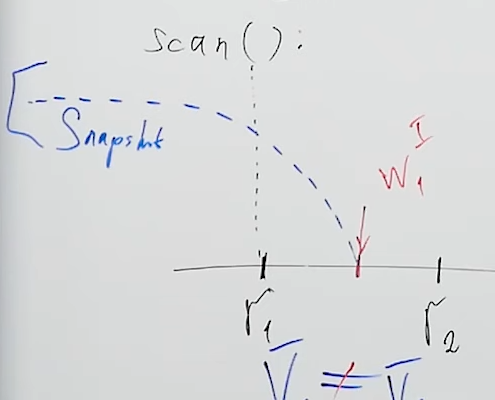 scan():
Snapshot
W₁ᴵ
r₁ r₂
V̄ ≠ V̄